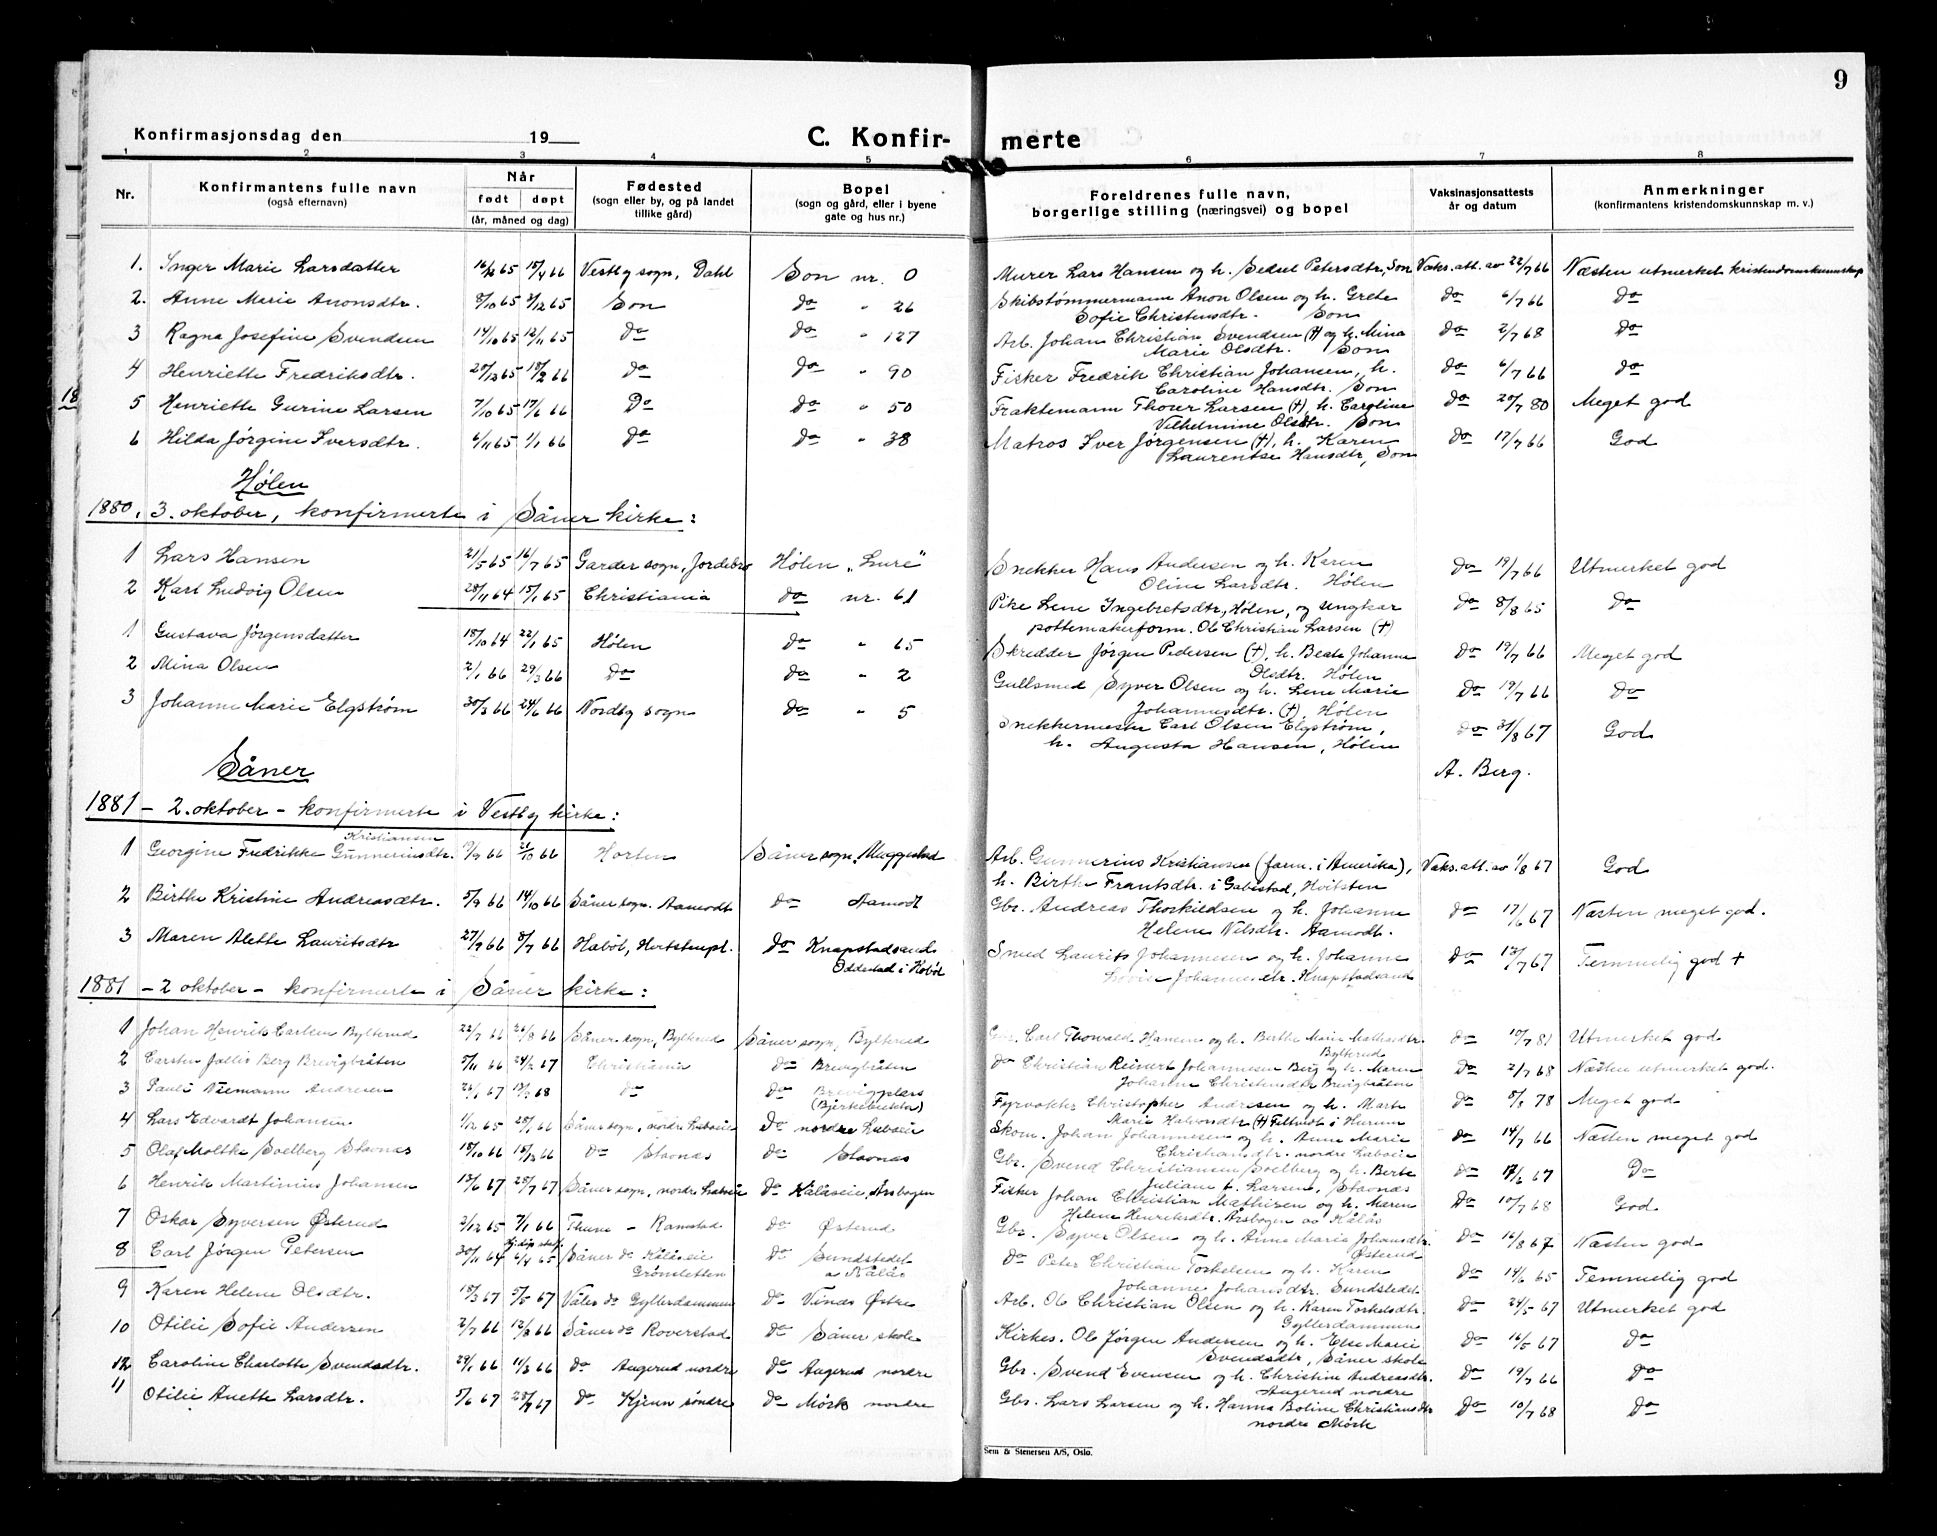 9
Konfirmasjonsdag den 19
C. Konfirmerte
1 2 3 4 5 6 7 8
Nr. Konfirmantens fulle navn (også efternavn) Når født døpt (år, måned og dag) Fødested (sogn eller by, og på landet tillike gård) Bopel (sogn og gård, eller i byene gate og hus nr.) Foreldrenes fulle navn, borgerlige stilling (næringsvei) og bopel Vaksinasjonsattests år og datum Anmerkninger (konfirmantens kristendomskunnskap m. v.)
1. Inger Marie Larsdatter 16/12 65 15/4 66 Vestby sogn, Dahl Son nr. 0 Murer Lars Hansen og h. Sedsel Petersdtr, Son Vaks. att. av 22/7 66 Næsten utmerket kristendomskunnskap
2. Anne Marie Anonsdtr. 8/10 65 3/12 65 Son do " 26 Skibstømmermann Anon Olsen og h. Grete do 6/7 66 do
Sofie Christensdtr. Son
3 Ragna Josefine Svendsen 14/10 65 12/11 65 do do " 127 Arb. Johan Christian Svendsen (†) og h. Mina do 2/7 68 do
Marie Olsdtr. Son
4 Henriette Fredriksdtr. 28/12 65 18/2 66 do do " 90 Fisker Fredrik Christian Johansen, h. do 6/7 66 do
Caroline Hansdtr. Son
5 Henriette Gurine Larsen 7/10 65 17/6 66 Do do " 50 Fraktemann Thorer Larsen (†), h. Caroline do 20/7 80 Meget god
Vilhelmine Olsdtr. Son
6 Hilda Jørgine Iversdtr. 4/11 65 1/1 66 do do " 38 Matros Iver Jørgensen (†), h. Karen do 17/7 66 God
Laurentse Hansdtr, Son
Hølen
1880, 3. oktober, konfirmerte i Såner kirke:
1 Lars Hansen 21/5 65 16/7 65 Garder sogn, Jordebra Hølen "Lure" Snekker Hans Andersen og h. Karen do 19/7 66 Utmerket god
Oline Larsdtr. Hølen
2 Karl Ludvig Olsen 28/11 64 15/1 65 Christiania do nr. 61 Pike Lene Ingebretsdtr, Hølen, og ungkar do 8/8 65 do
pottemakerform. Ole Christian Larsen (†)
1 Gustava Jørgensdatter 18/10 64 22/1 65 Hølen do " 65 Skredder Jørgen Pedersen (†), h. Beate Johanne do 19/7 66 Meget god
Olsdtr. Hølen
2 Mina Olsen 2/1 66 29/3 66 Do do " 2 Gullsmed Syver Olsen og h. Lene Marie do 19/7 66 Do
Johannesdtr. (†), Hølen
3 Johanne Marie Elgstrøm 30/3 66 24/6 66 Nordby sogn do " 5 Snekkermester Carl Olsen Elgstrøm, do 31/8 67 God
h. Augusta Hansen, Hølen
A. Berg.
Såner
1881 - 2. oktober - konfirmerte i Vestby kirke:
Kristiansen
1 Georgine Fredrikke Gunneriusdtr. 19/9 66 21/10 66 Horten Såner sogn, Muggestad Arb. Gunnerius Kristiansen (farm. i Amerika), Vaks. att. av 1/8 67 God
h. Birthe Frantsdtr. i Gabestad, Hvitsten
2 Birthe Kristine Andreasdtr. 5/9 66 14/10 66 Såner sogn. Aamodt do Aamodt Gbr. Andreas Thorkildsen og h. Johanne do 17/6 67 Næsten meget god.
Helene Nilsdtr. Aamodt.
3 Maren Alette Lauritsdtr 27/2 66 8/7 66 Haböl, do Knapstadsand Smed Laurits Johannesen og h. Johanne do 13/7 67 Temmelig god +
Oddestad i Haböl Lovise Johannesdtr. Knapstadsand
1881 - 2 oktober - konfirmerte i Såner kirke:
1 Johan Henrik Carlsen Bylterud 22/7 66 26/8 66 Såner sogn, Bylterud Såner sogn, Bylterud Gbr. Carl Thorvald Hansen og h. Berthe Marie Mathiasdtr do 10/7 81 Utmerket god
Bylterud
2 Carsten Jallis Berg Brevigbråten 5/11 66 24/2 67 Christiania do Brevigbråten do Christian Reinert Johannesen Berg og h. Maren do 2/7 68 Næsten utmerket god.
Johanne Christensdtr Brevigbråten
3 Pauli Niemann Andresen 26/1 67 13/9 68 do do Brevigplass Fyrvokter Christopher Andresen og h. Marte do 8/8 78 Meget god
(Bjerkebekken) Marie Halvorsdtr (†) Filtvedt i Hurum
4 Lars Edvardt Johansen 1/12 65 28/1 66 Såner sogn, nordre Laboeie Do nordre Laboeie Skom. Johan Johannesen og h. Anne Marie do 14/7 66 Næsten meget god
Christiansdtr. nordre Laboeie
5 Olaf Moltke Solberg Stavnæs 18/10 66 15/12 66 do Stavnæs do Stavnæs Gbr. Svend Christiansen Solberg og h. Berte do 17/6 67 Do
Juliane f. Larsen, Stavnæs
6 Henrik Martinius Johansen 13/6 67 28/7 67 Såner sogn, nordre Laboeie do Kålåseie, Årsbogen Fisker Johan Christian Mathisen og h. Maren do 10/7 68 God
Helene Henriksdtr. Årsbogen av Kålås
7 Oskar Syversen Østerud 2/12 65 7/1 66 Thune - Ramstad do Østerud Gbr. Syver Olsen og h. Anne Marie Johansdtr. do 16/8 67 Næsten god
Østerud
8 Carl Jørgen Petersen 30/11 64 6/4 65 Såner do Kålåseie do Sundstedet do Peter Christian Torkelsen og h. Karen do 14/6 65 Temmelig god
Grønsletten av Kålås Johanne Johansdtr. Sundstedet
9 Karen Helene Olsdtr. 18/3 67 5/5 67 Våler do Gylterdammen do Vinæs Østre Arb. Ole Christian Olsen og h. Karen Torkelsdtr. do 24/5 67 Utmerket god
Gylterdammen
10 Otilie Sofie Andersen 2/7 66 12/8 66 Såner do Roverstad do Såner skole Kirkes. Ole Jørgen Andersen og h. Else Marie do 16/5 67 do
Svendsdtr, Såner skole
12 Caroline Charlotte Svendsdtr. 29/1 66 11/3 66 do Augerud nordre do Augerud nordre Gbr. Svend Evensen og h. Christine Andreasdtr. do 19/7 66 Do
Augerud nordre
11 Otilie Anette Larsdtr. 5/6 67 28/7 67 do Kjenn søndre do Mörk nordre Gbr. Lars Larsen og h. Hanna Boline Christiansdtr do 10/7 68 Do
nordre Mörk
Sem & Stenersen A/S, Oslo.